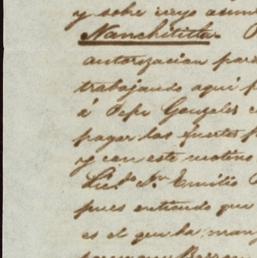 y sobre cuyo asun
Nanchititla.
autorizacion para
trabajando aquí p
á Pepe Gonzales
pagar las fuertes
y con este motivo
Lic.do Dn. Emilio
pues entiendo que
es el que ha man